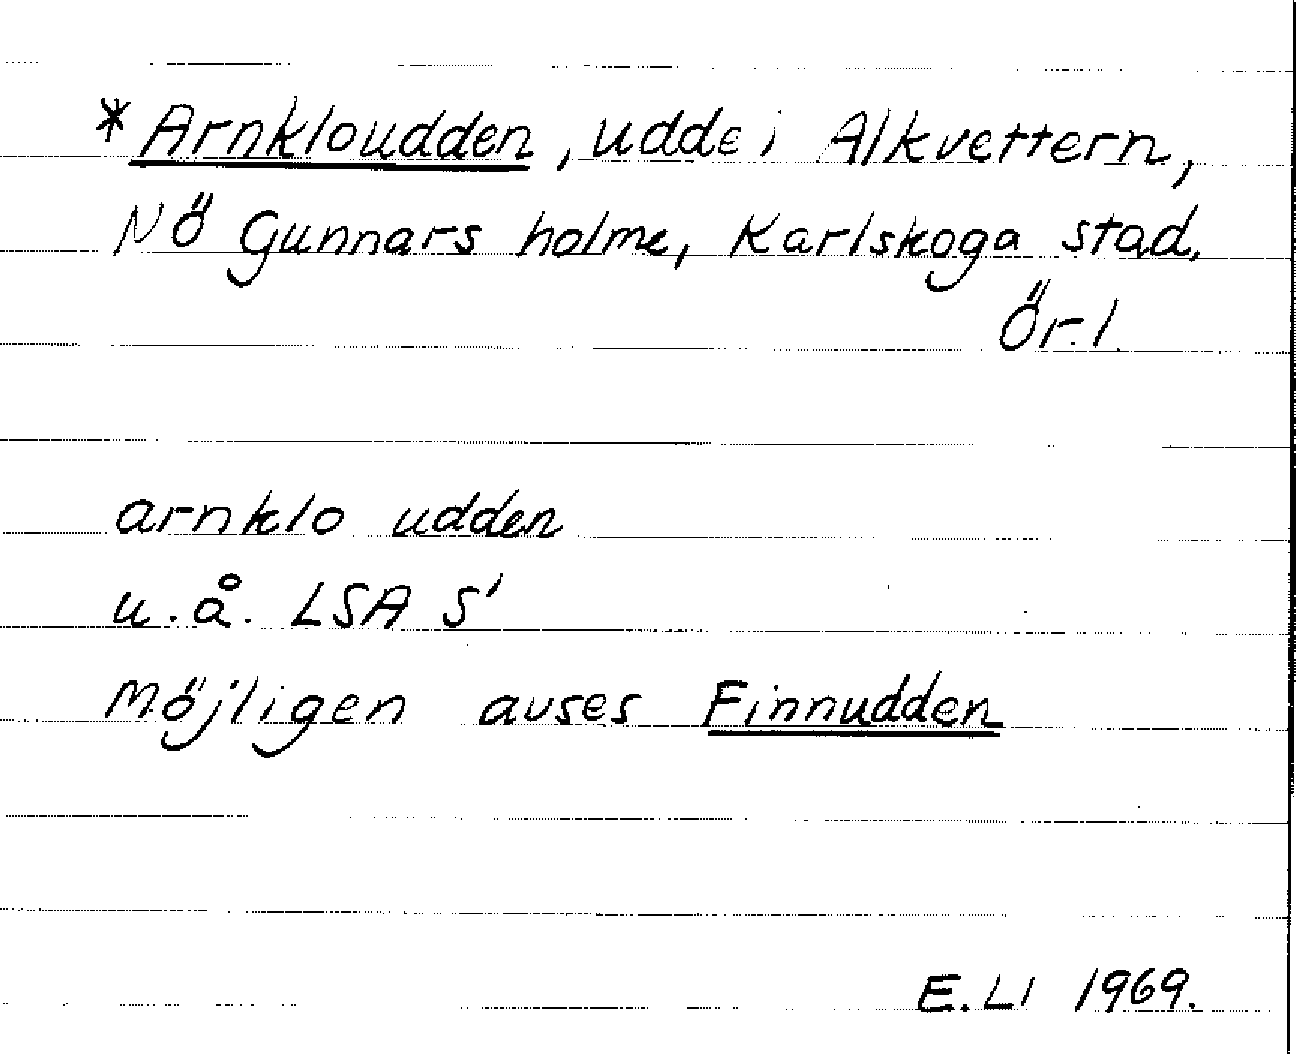 * Arnkloudden, udde i Alkvettern,
NÖ Gunnars holme, Karlskoga stad,
Ör.l.
arnklo udden
u.å. LSA S'
Möjligen avses Finnudden
E.LI 1969.